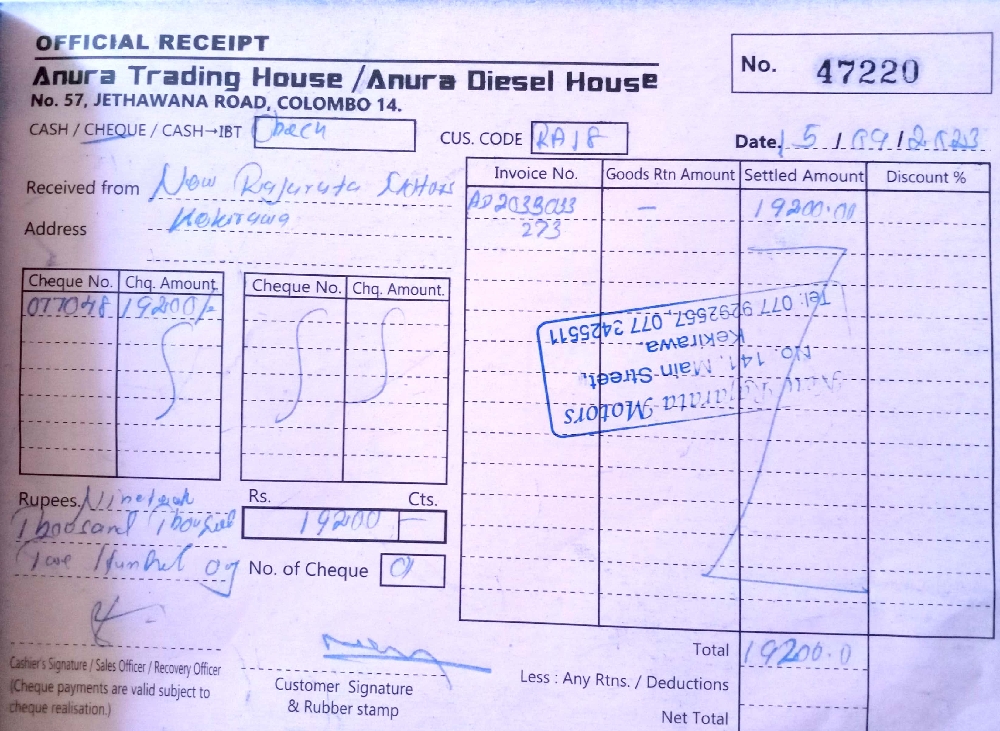 OFFICIAL RECEIPT
Anura Trading House / Anura Diesel House
No. 57, JETHAWANA ROAD, COLOMBO 14.
No. 47220
CASH / CHEQUE / CASH→IBT
CUS. CODE
Date. 15 / 09 / 2023
Received from New Rajarata Motors
Address Kekirawa
Invoice No. Goods Rtn Amount Settled Amount Discount %
AD2033033 — 19200.00
273
Cheque No. Chq. Amount. Cheque No. Chq. Amount.
077048 19200/-
New Rajarata Motors
No. 141, Main Street,
Kekirawa.
Tel: 077 9292557, 077 3425511
Rupees. Nineteen
Thousand
Two Hundred
Rs. Cts.
19200 —
No. of Cheque 01
Cashier's Signature / Sales Officer / Recovery Officer
(Cheque payments are valid subject to
cheque realisation.)
Customer Signature
& Rubber stamp
Total 19200.0
Less : Any Rtns. / Deductions
Net Total